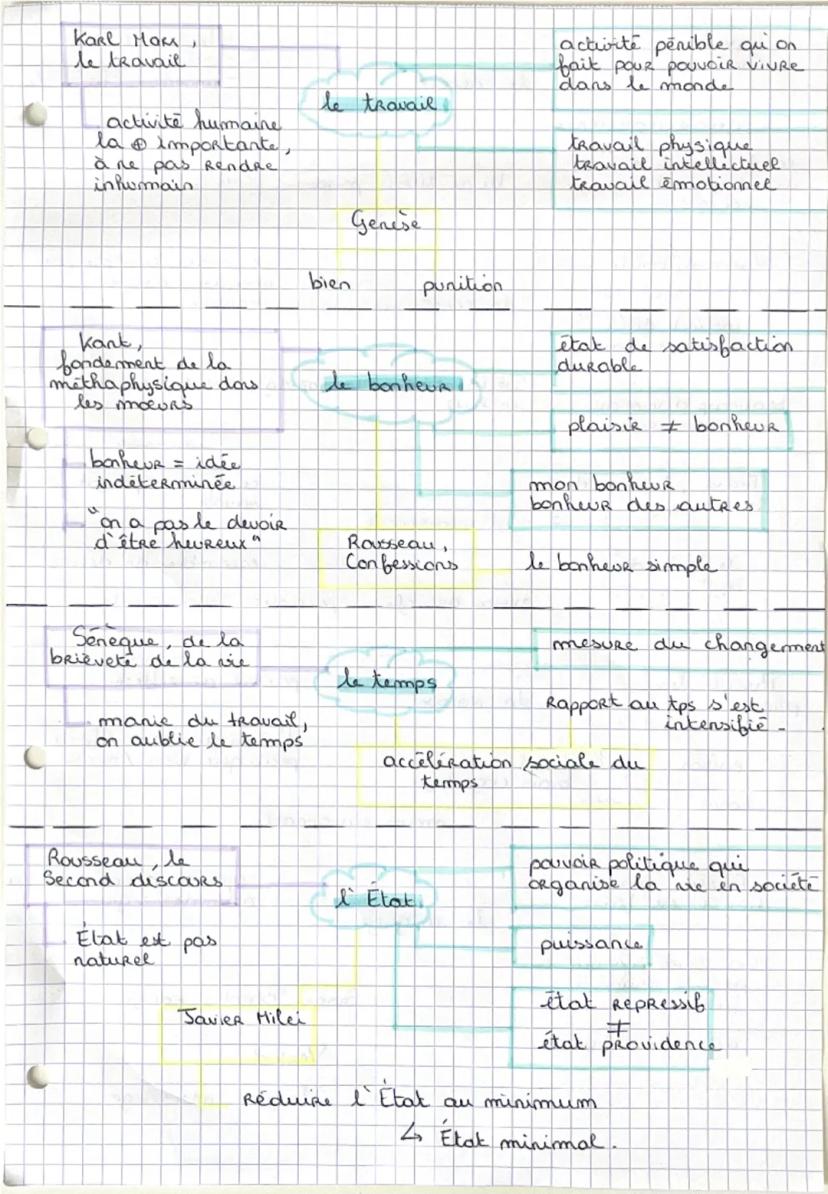 Karl Marx,
le travail
activité humaine
la ⊕ importante,
à ne pas rendre
inhumain
le travail
activité pénible qu'on
fait pour pouvoir vivre
dans le monde
travail physique
travail intellectuel
travail émotionnel
Genèse
bien punition
Kant,
fondement de la
méthaphysique dans
les mœurs
bonheur = idée
indéterminée
"on a pas le devoir
d'être heureux"
le bonheur
état de satisfaction
durable
plaisir ≠ bonheur
mon bonheur
bonheur des autres
Rousseau,
Confessions
le bonheur simple
Sénèque, de la
brièveté de la vie
manie du travail,
on oublie le temps
le temps
mesure du changement
Rapport au tps s'est
intensifié.
accélération sociale du
temps
Rousseau, le
Second discours
État est pas
naturel
l'État
pouvoir politique qui
organise la vie en société
puissance
état répressif
≠
état providence
Javier Milei
Réduire l'État au minimum
↳ État minimal.